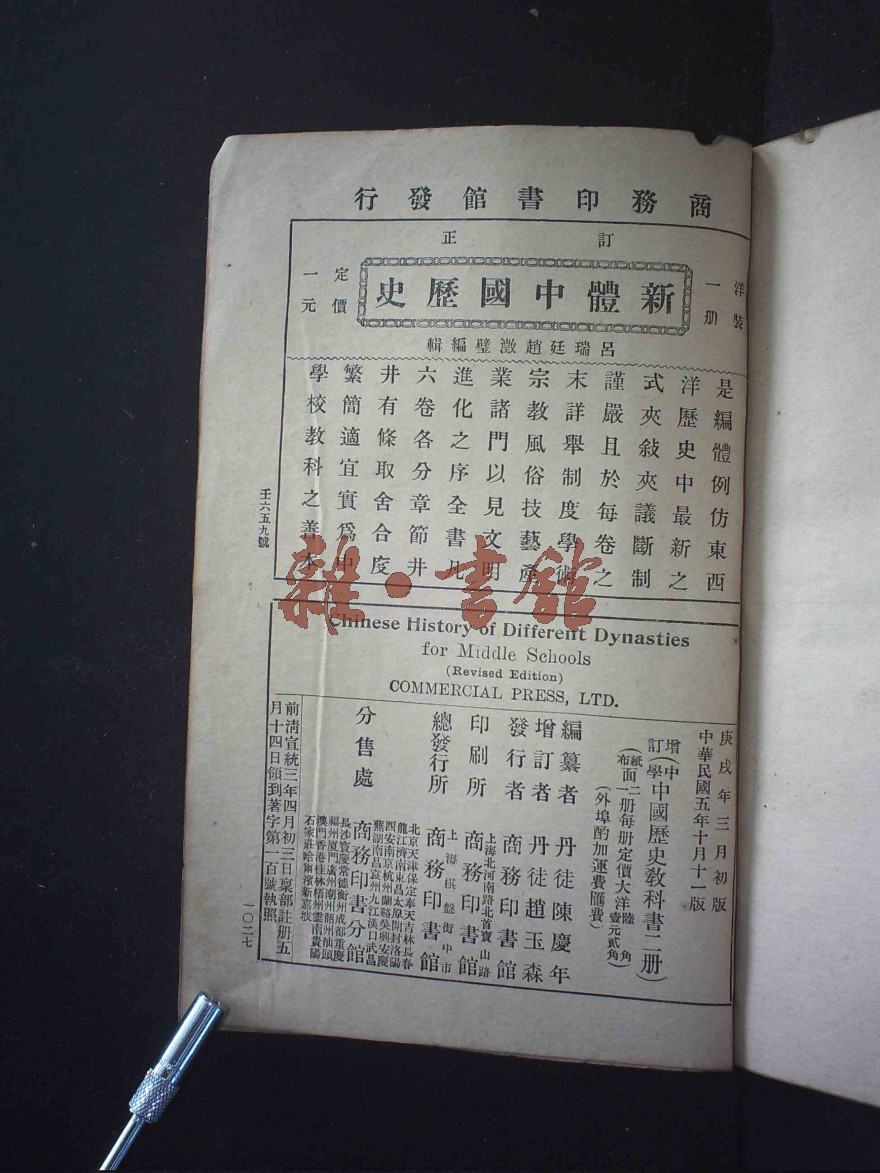 商務印書館發行
訂正
洋裝一册
新體中國歷史
定價一元
呂瑞廷趙澂璧編輯
是編體例仿東西
洋歷史中最新之
式夾敍夾議斷制
謹嚴且於每卷之
末詳舉制度學術
宗教風俗技藝產
業諸門以見文明
進化之序全書凡
六卷各分章節井
井有條取舍合度
繁簡適宜實爲中
學校教科之善本
壬六五九號
雜·書館
Chinese History of Different Dynasties
for Middle Schools
(Revised Edition)
COMMERCIAL PRESS, LTD.
庚戌年三月初版
中華民國五年十月十一版
增訂(中學)中國歷史教科書二册)
(紙布面二一册每册定價大洋陸角壹元貳角)
(外埠酌加運費匯費)
編纂者 丹徒陳慶年
增訂者 丹徒趙玉森
發行者 商務印書館
印刷所 上海北河南路北首寶山路 商務印書館
總發行所 上海棋盤街中市 商務印書館
分售處 商務印書分館
北京天津保定奉天吉林長春
龍江濟南東昌太原開封洛陽
西安南京杭州蘭谿吳興安慶
蕪湖南昌袁州九江漢口武昌
長沙寶慶常德衡州成都重慶
福州厦門廣州潮州韶州汕頭
澳門香港桂林梧州雲南貴陽
石家莊哈爾濱新嘉坡
前淸宣統三年四月初三日稟部註册五
月十四日領到著字第一百號執照
一〇二七